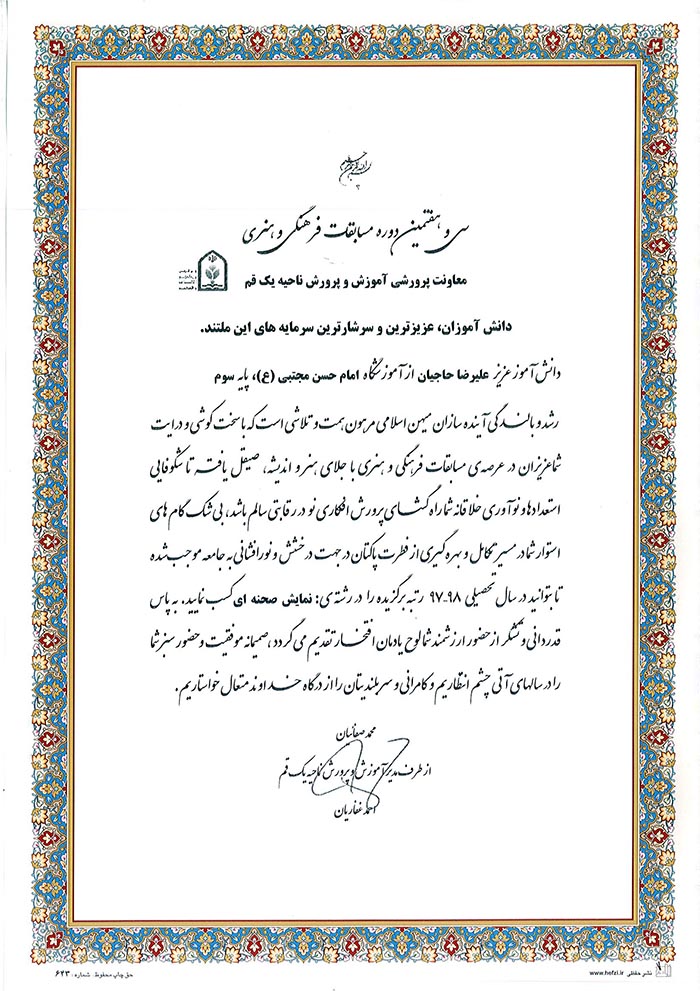 بسم الله الرحمن الرحیم
سی و هفتمین دوره مسابقات فرهنگی و هنری
معاونت پرورشی آموزش و پرورش ناحیه یک قم
دانش آموزان، عزیزترین و سرشارترین سرمایه های این ملتند.
دانش آموز عزیز علیرضا حاجیان از آموزشگاه امام حسن مجتبی (ع)، پایه سوم
رشد و بالندگی آینده سازان میهن اسلامی مرهون همت و تلاشی است که با سخت کوشی و درایت
شما عزیزان در عرصه‌ی مسابقات فرهنگی و هنری با جلای هنر و اندیشه، صیقل یافته تا شکوفایی
استعدادها و نوآوری خلاقانه شما راه گشای پرورش افکاری نو در رقابتی سالم باشد، بی شک گام های
استوار شما در مسیر تکامل و بهره گیری از فطرت پاکتان در جهت درخشش و نورافشانی به جامعه موجب شده
تا بتوانید در سال تحصیلی ۹۸-۹۷ رتبه برگزیده را در رشته ی: نمایش صحنه ای کسب نمایید. به پاس
قدردانی و تشکر از حضور ارزشمند شما لوح یادمان افتخار تقدیم می گردد، صمیمانه موفقیت و حضور سبز شما
را در سالهای آتی چشم انتظاریم و کامرانی و سربلندیتان را از درگاه خداوند متعال خواستاریم.
محمد صفائیان
از طرف مدیر آموزش و پرورش ناحیه یک قم
احمد غفاریان
نشر حفظی www.hefzi.ir
حق چاپ محفوظ. شماره: ۶۴۳